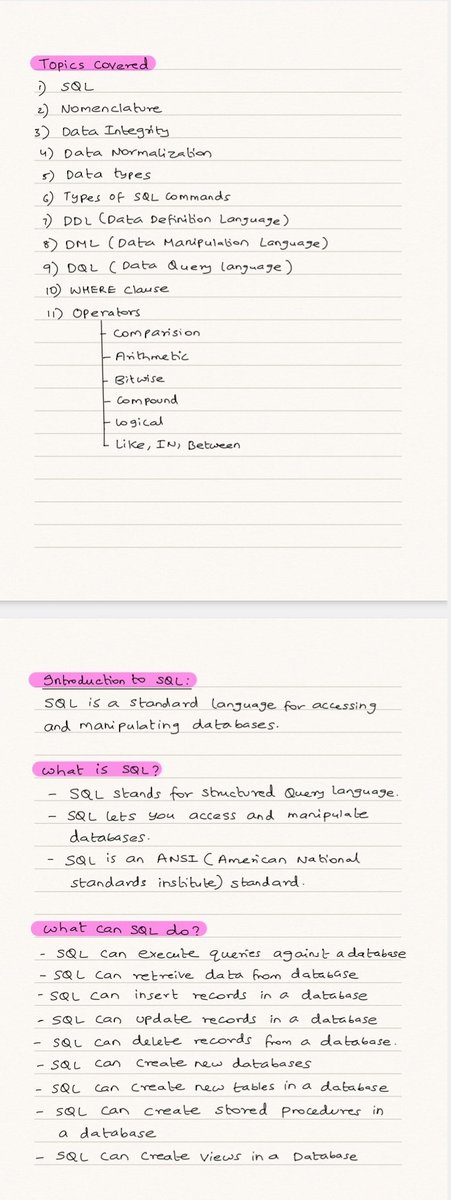 Topics Covered
1) SQL
2) Nomenclature
3) Data Integrity
4) Data Normalization
5) Data types
6) Types of SQL Commands
7) DDL (Data Definition Language)
8) DML (Data Manipulation Language)
9) DQL (Data Query language)
10) WHERE clause
11) Operators
- Comparision
- Arithmetic
- Bitwise
- Compound
- Logical
- Like, IN, Between
Introduction to SQL:
SQL is a standard language for accessing
and manipulating databases.
What is SQL?
- SQL stands for Structured Query language.
- SQL lets you access and manipulate
databases.
- SQL is an ANSI (American National
standards institute) standard.
What can SQL do?
- SQL can execute queries against a database
- SQL can retreive data from database
- SQL can insert records in a database
- SQL can update records in a database
- SQL can delete records from a database.
- SQL can create new databases
- SQL can create new tables in a database
- SQL can create stored procedures in
a database
- SQL can create views in a Database